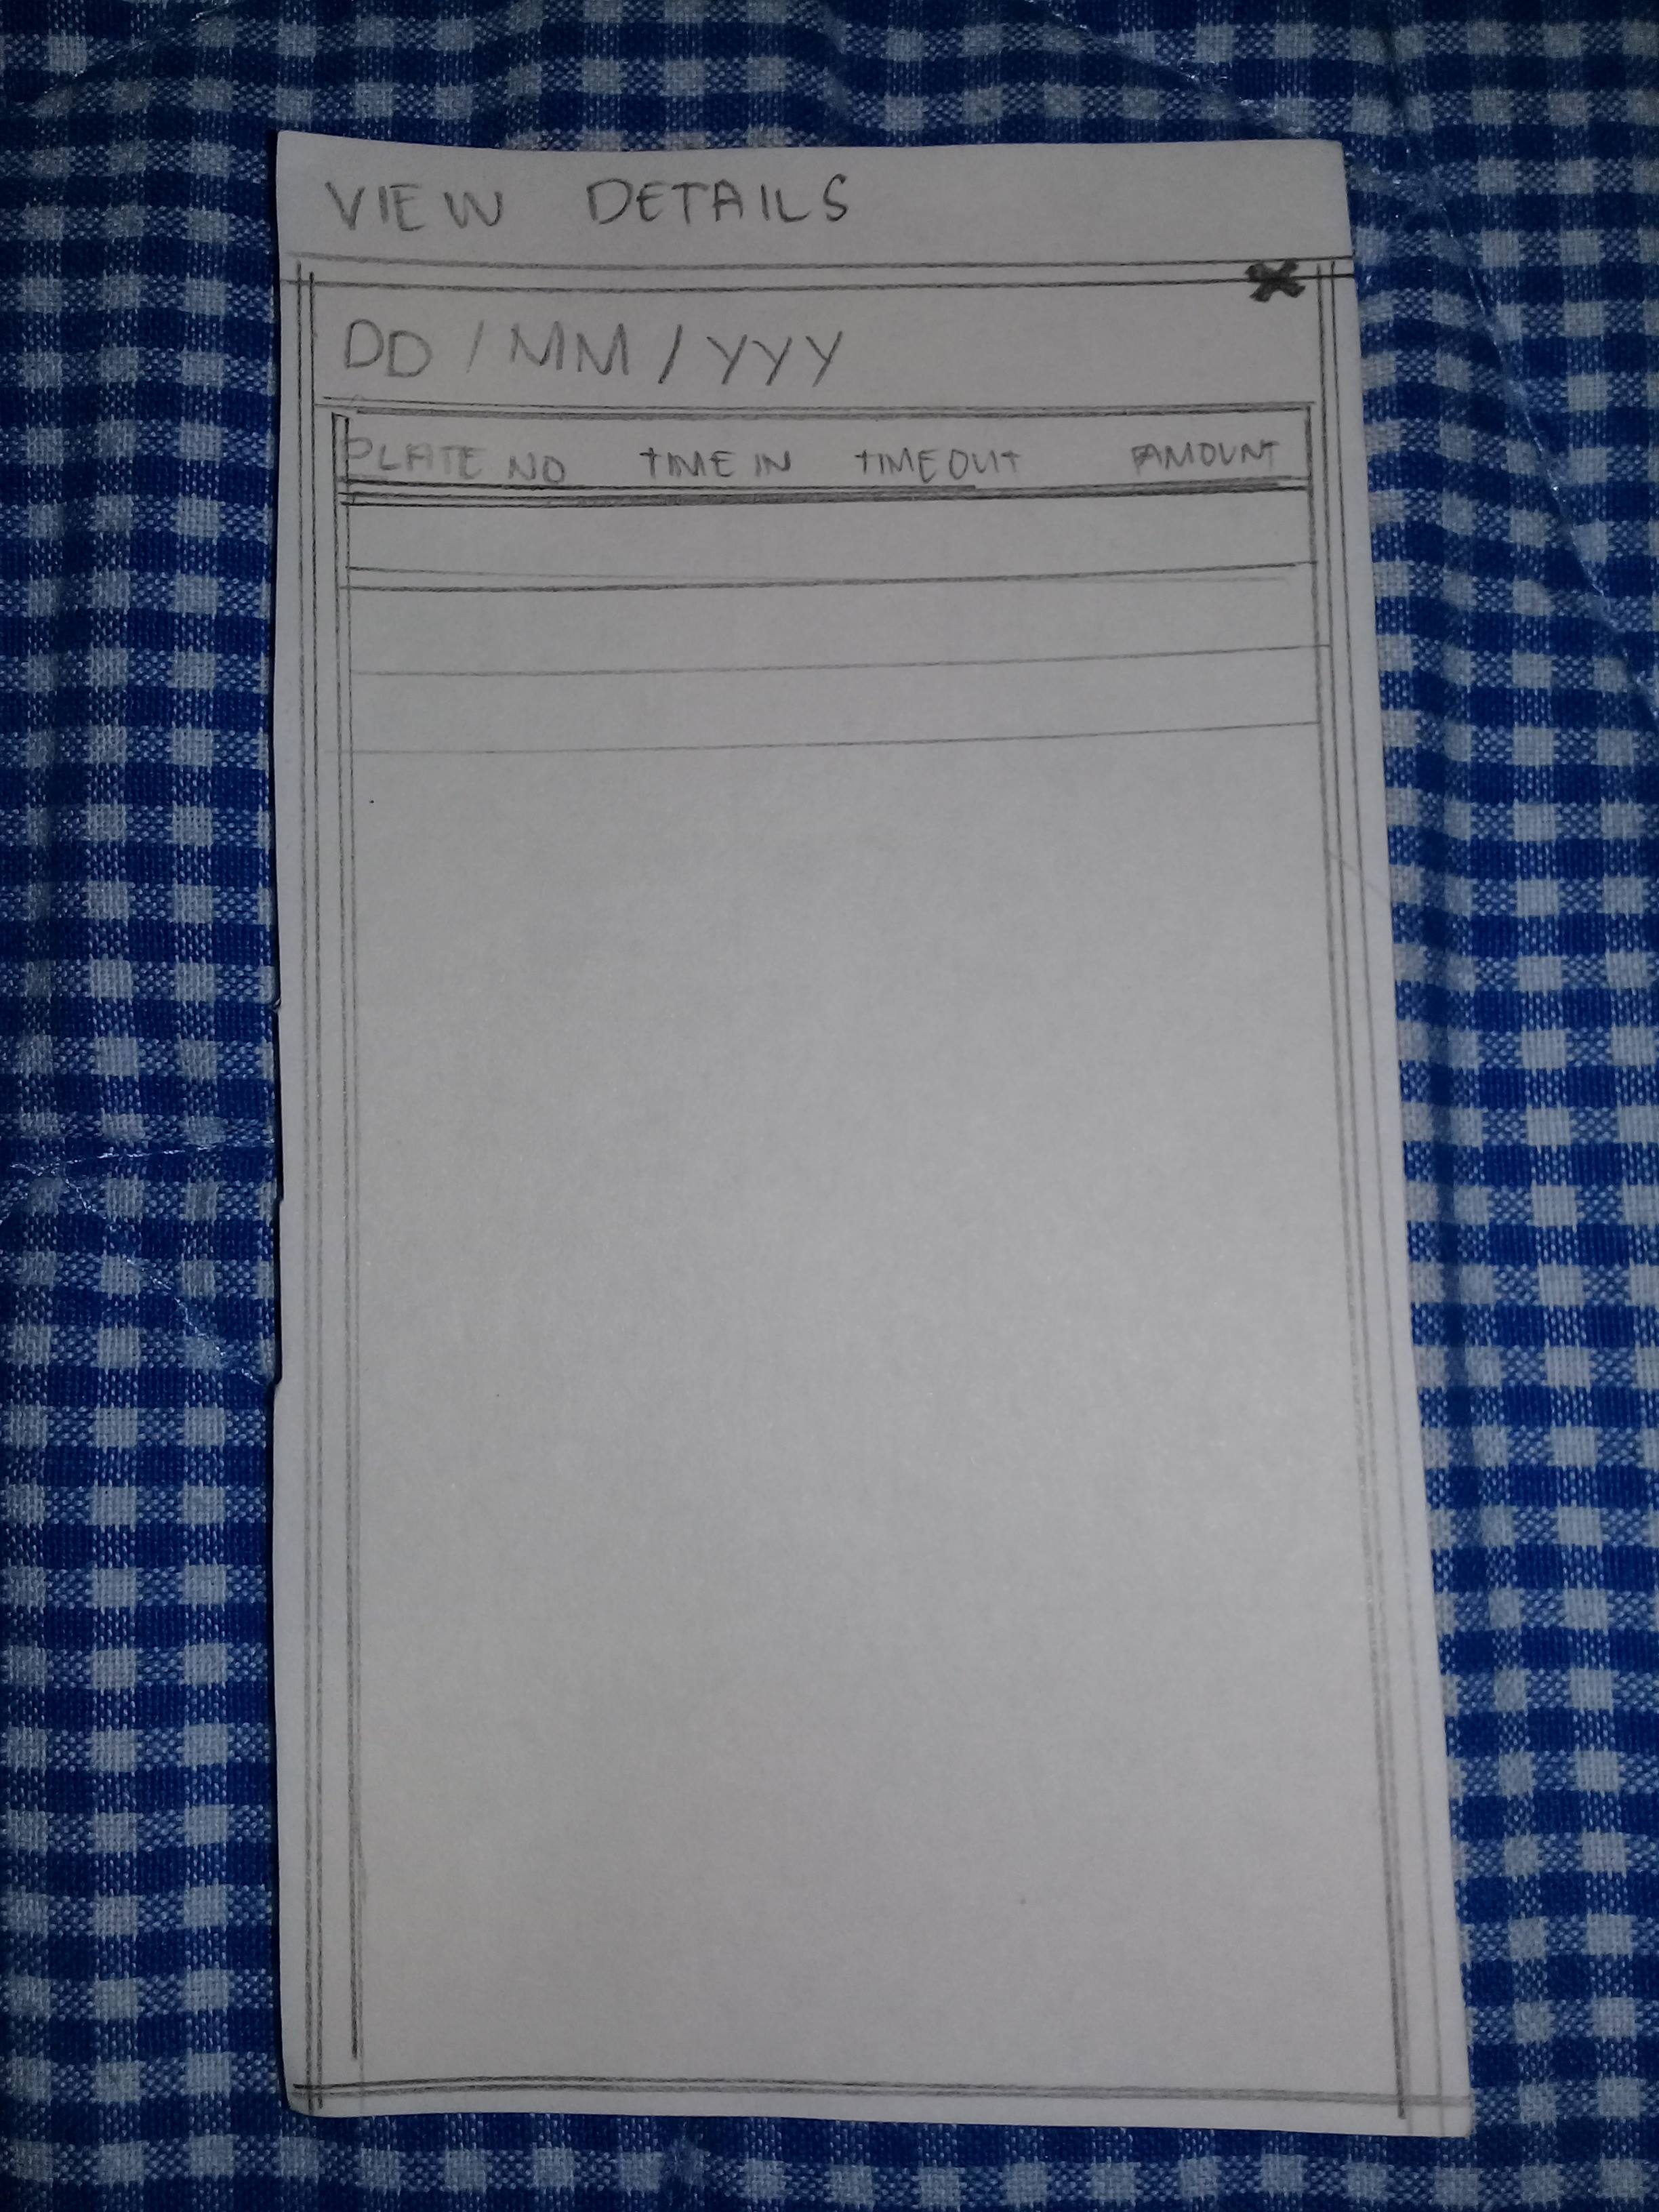 VIEW DETAILS
DD / MM / YYY
PLATE NO TIME IN TIME OUT AMOUNT